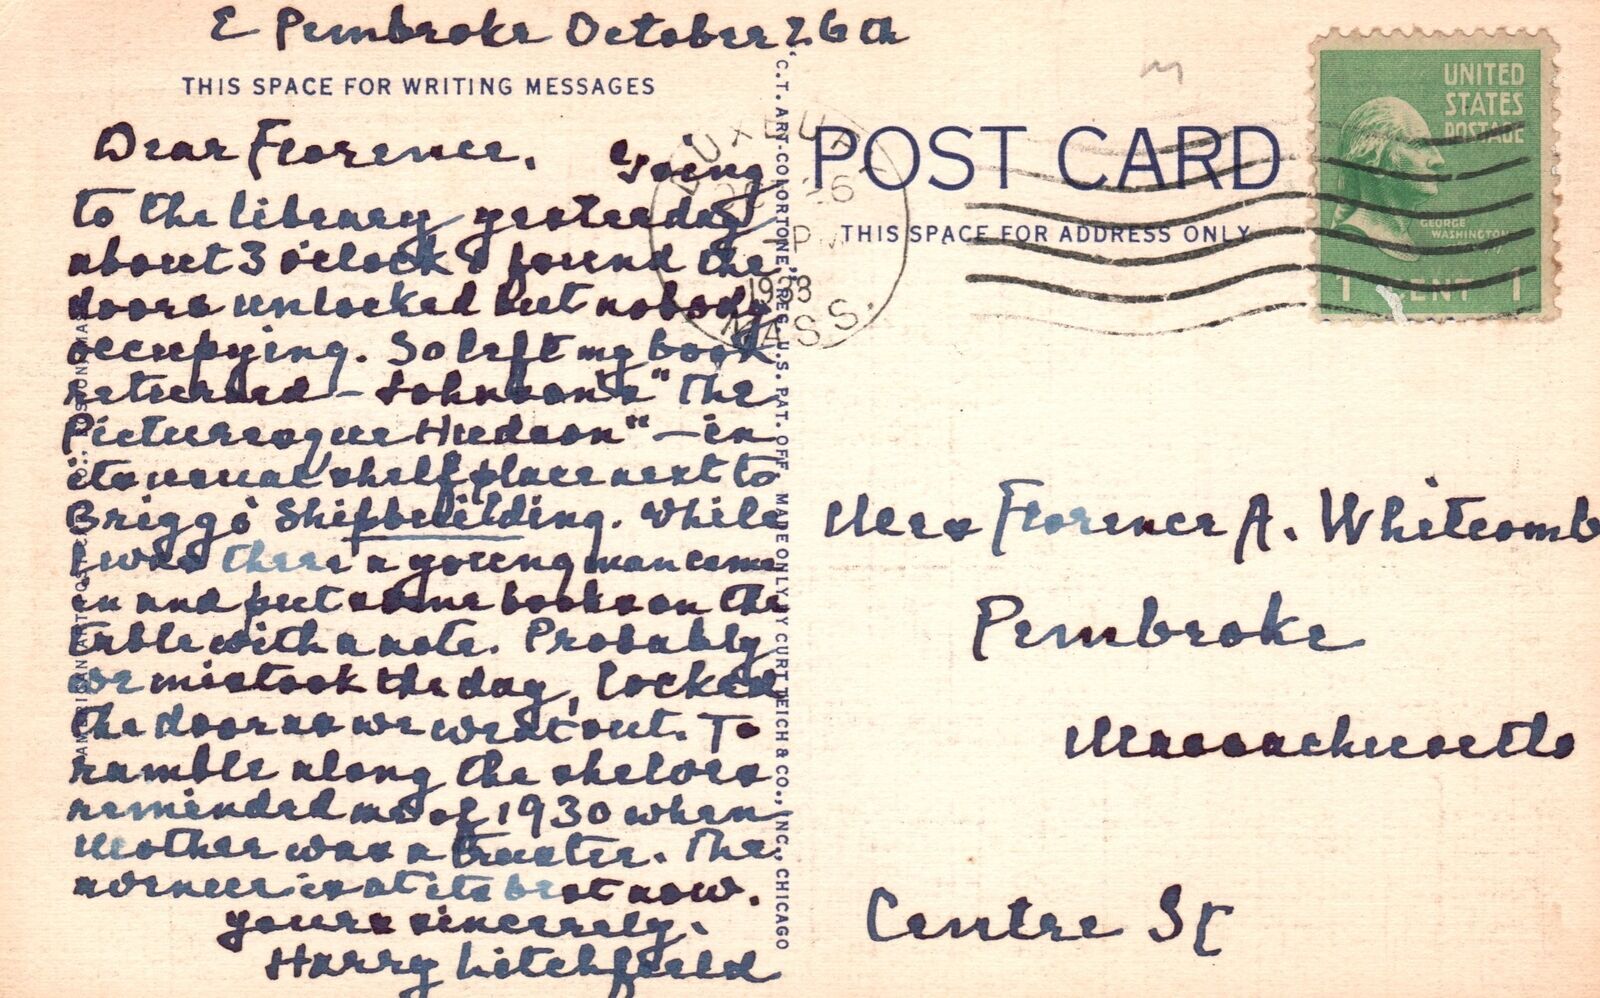 E Pembroke October 26th
THIS SPACE FOR WRITING MESSAGES
Dear Florence. Going
to the library yesterday
about 3 o'clock I found the
doors unlocked but nobody
occupying. So left my book
returned – Johnson's "The
Picturesque Hudson" – in
its usual shelf place next to
Briggs' Shipbuilding. While
I was there a young man came
in and put some books on the
table with a note. Probably
we mistook the day, locked
the door as we went out. To
ramble along the shelves
reminded me of 1930 when
Mother was a trustee. The
avenue is at its best now.
Yours sincerely.
Harry Litchfield
"C.T. ART-COLORTONE," REG. U.S. PAT. OFF. MADE ONLY BY CURT TEICH & CO., INC., CHICAGO
DUXBURY
26
PM
1938
MASS.
POST CARD
THIS SPACE FOR ADDRESS ONLY
UNITED
STATES
POSTAGE
GEORGE
WASHINGTON
1 CENT 1
Mrs Florence A. Whitcomb
Pembroke
Massachusetts
Centre St